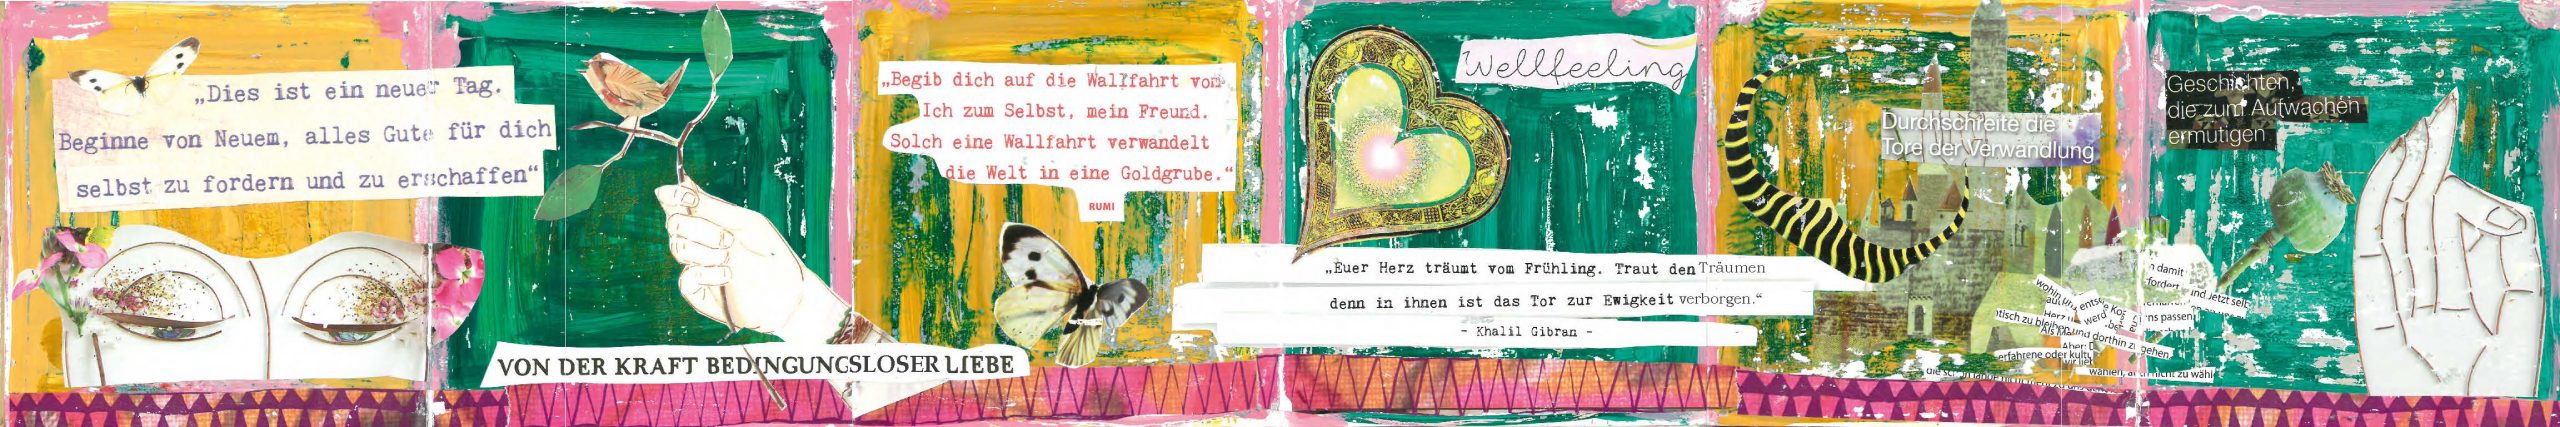 „Dies ist ein neuer Tag.
Beginne von Neuem, alles Gute für dich
selbst zu fordern und zu erschaffen“
VON DER KRAFT BEDINGUNGSLOSER LIEBE
„Begib dich auf die Wallfahrt vom
Ich zum Selbst, mein Freund.
Solch eine Wallfahrt verwandelt
die Welt in eine Goldgrube.“
RUMI
Wellfeeling
„Euer Herz träumt vom Frühling. Traut den Träumen
denn in ihnen ist das Tor zur Ewigkeit verborgen.“
- Khalil Gibran -
Durchschreite die
Tore der Verwandlung
Geschichten,
die zum Aufwachen
ermutigen
damit
fordert
und Jetzt
passen
zu bleiben und dorthin
erfahrene oder
wählen, nicht zu